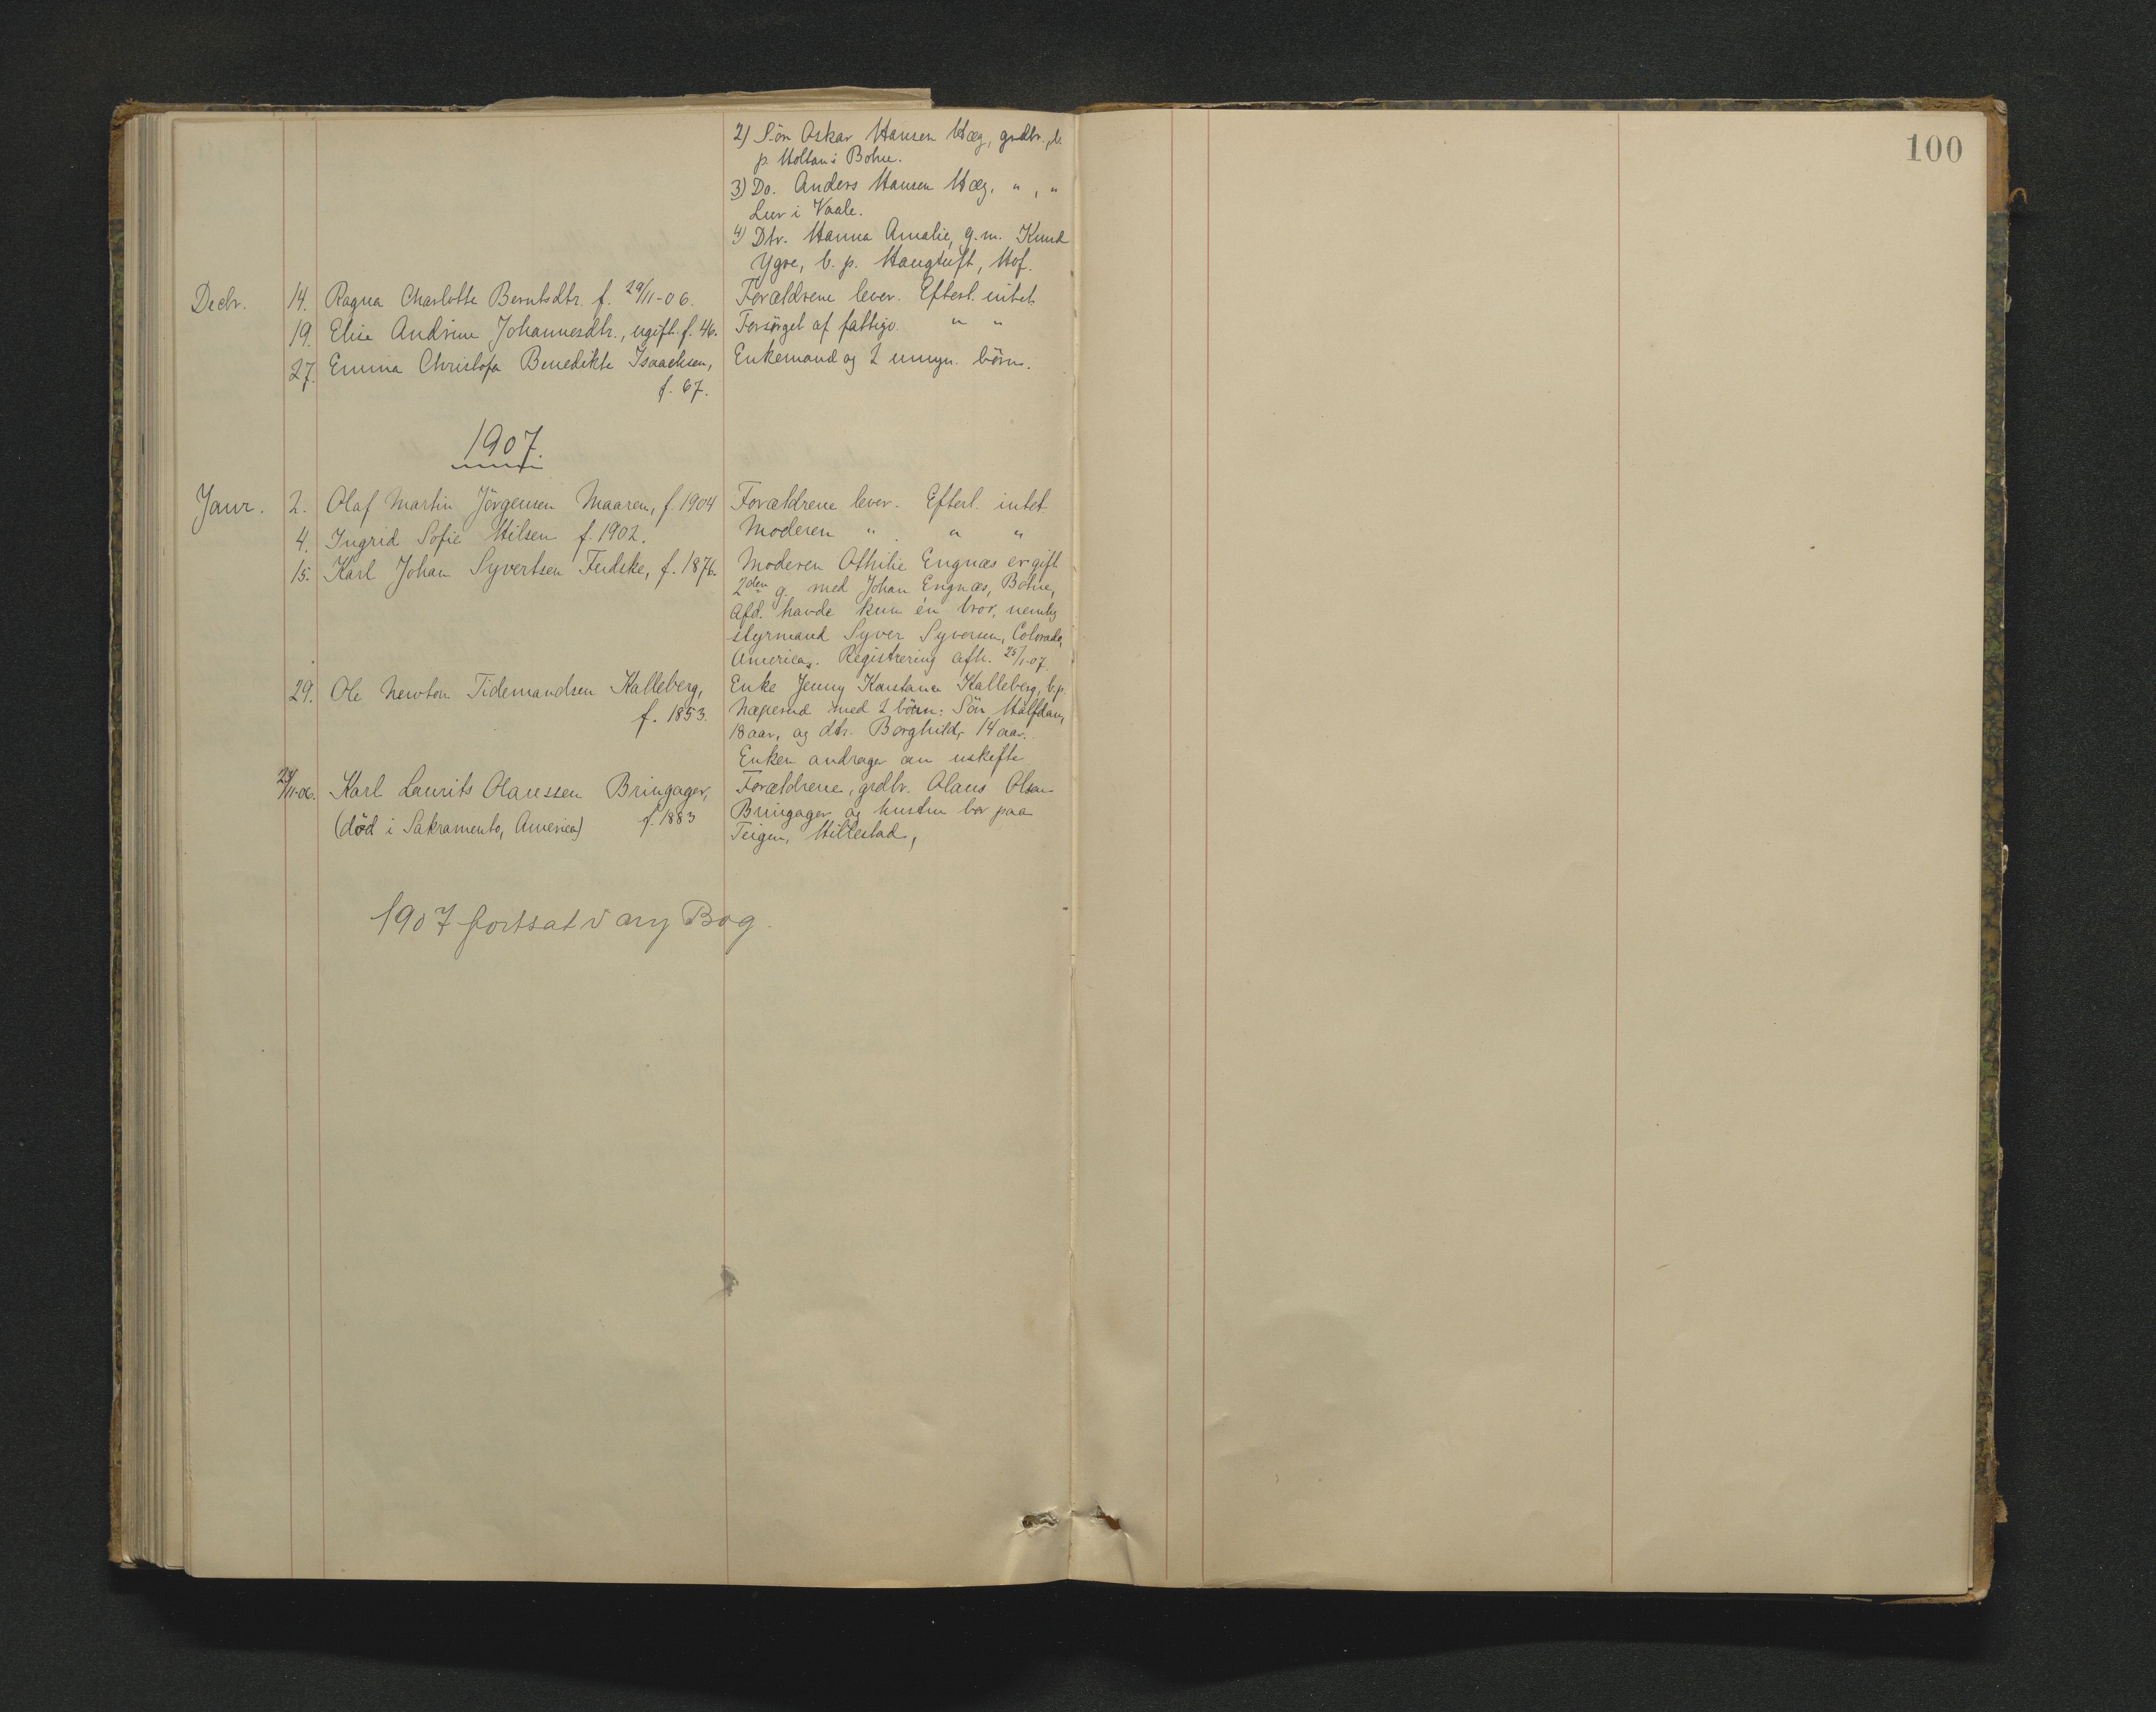 100
2) Sön Oskar Hansen Hæg, grdbr., b.
p. Holtan i Bohne.
3) Do. Anders Hansen Hæg, " , "
Luv i Vaale.
4) Dtr. Hanna Amalie, g.m. Knud
Ygre, b. p. Haugtuft, Hof.
Decbr. 14. Ragna Charlotte Berntsdtr. f. 29/11-06. Forældrene lever. Efterl. intet.
19. Elise Andrine Johannesdtr., ugift. f. 46. Forsörget af fattigv. " "
27. Emma Christofa Benedikte Isaachsen, Enkemand og 2 umyn. börn.
f. 67.
1907.
Janr. 2. Olaf Martin Jörgensen Maaren, f. 1904 Forældrene lever. Efterl. intet.
4. Ingrid Sofie Hilsen f. 1902. Moderen " . " "
15. Karl Johan Syvertsen Fudske, f. 1876. Moderen Othilie Engnæs er gift
2den g. med Johan Engnæs, Bohne,
Afd. havde kun én bror, nemlig
styrmand Syver Syversen, Colorado,
America. Registrering afh. 25/1-07.
29. Ole Newton Tidemandsen Kalleberg, Enke Jenny Konstance Kalleberg, b.p.
f. 1853. Næperud med 2 börn: Sön Halfdan,
18 aar, og dtr. Borghild, 14 aar.
Enken andrager om uskifte
23/11-06. Karl Laurits Olaussen Bringager, Forældrene, grdbr. Olaus Olsen
(död i Sakramento, America) f. 1883 Bringager og hustru bor paa
Teigen, Hillestad,
1907 fortsat i ny Bog.